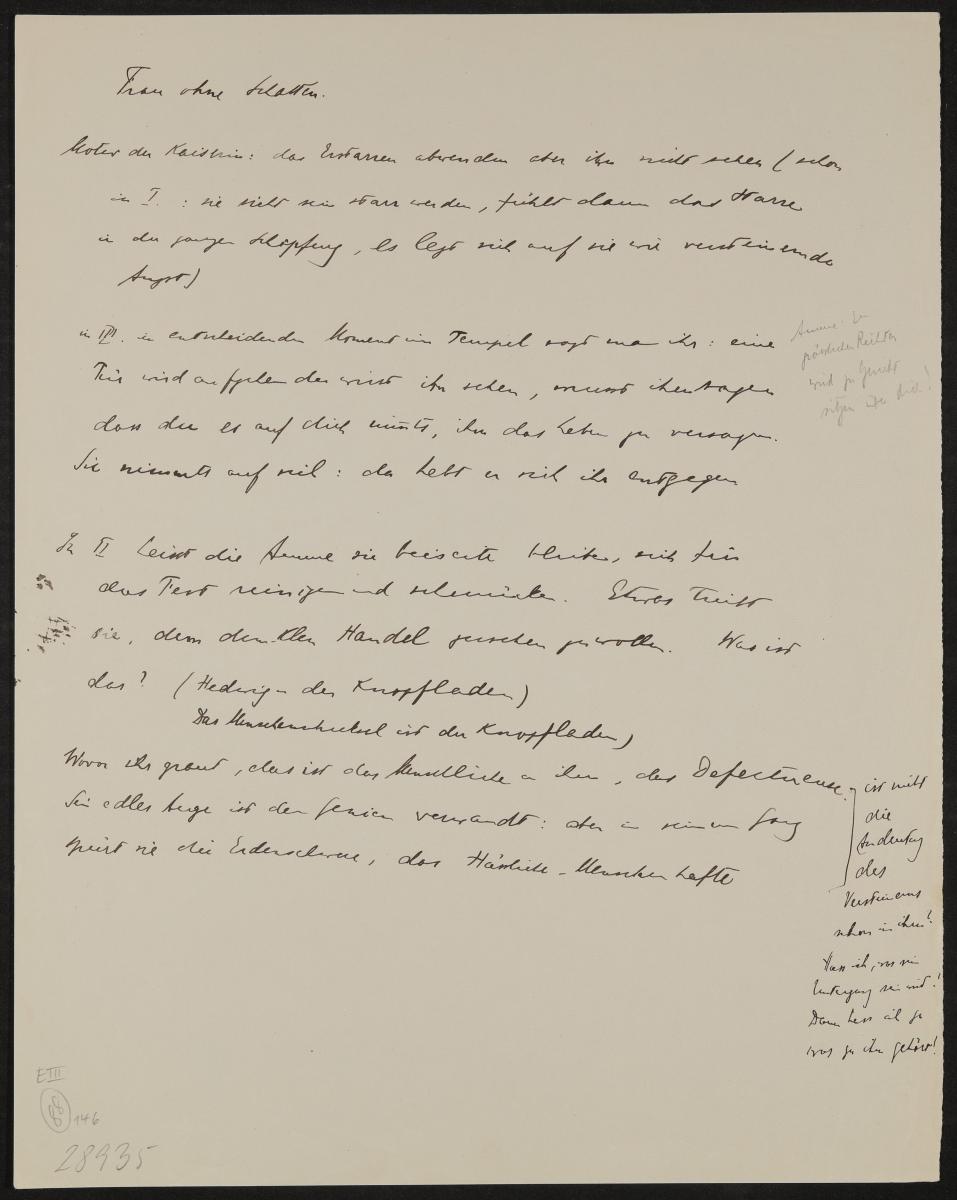 Frau ohne Schatten.
Motiv der Kaiserin: das Erstarren abwenden aber ihn nicht sehen (schon
in I. : sie sieht ihn starr werden, fühlt dann das Starre
in der ganzen Schöpfung, es legt sich auf sie wie versteinernde
Angst)
in III. im entscheidenden Moment im Tempel sagt man ihr: eine
Tür wird aufgehen du wirst ihn sehen, musst ihm sagen
dass du es auf dich nimmst, ihm das Leben zu versagen.
Sie nimmts auf sich: da hebt er sich ihr entgegen
Amme: Im
wird zu Gericht
sitzen über dich!
In II heisst die Amme sie beiseite bleiben, sich für
das Fest reinigen und schmücken. Etwas treibt
sie, dem dunklen Handel zusehen zu wollen. Was ist
das? (Hedwig in den Knopfladen)
Das Menschenschicksal ist der Knopfladen)
Wovor ihr graut, das ist das Menschliche an ihm, das Defectueuse.
Sein edles Auge ist den Genien verwandt: aber in seinem Gang
spürt sie die Erdenschwere, das Hässliche-Menschenhafte
ist nicht
die
Andeutung
des
Versteinerns
schon in ihm?
Hass ich, was sein
Untergang sein wird!
Dann hass ich ja
was zu ihm gehört!
E III
88
146
28935